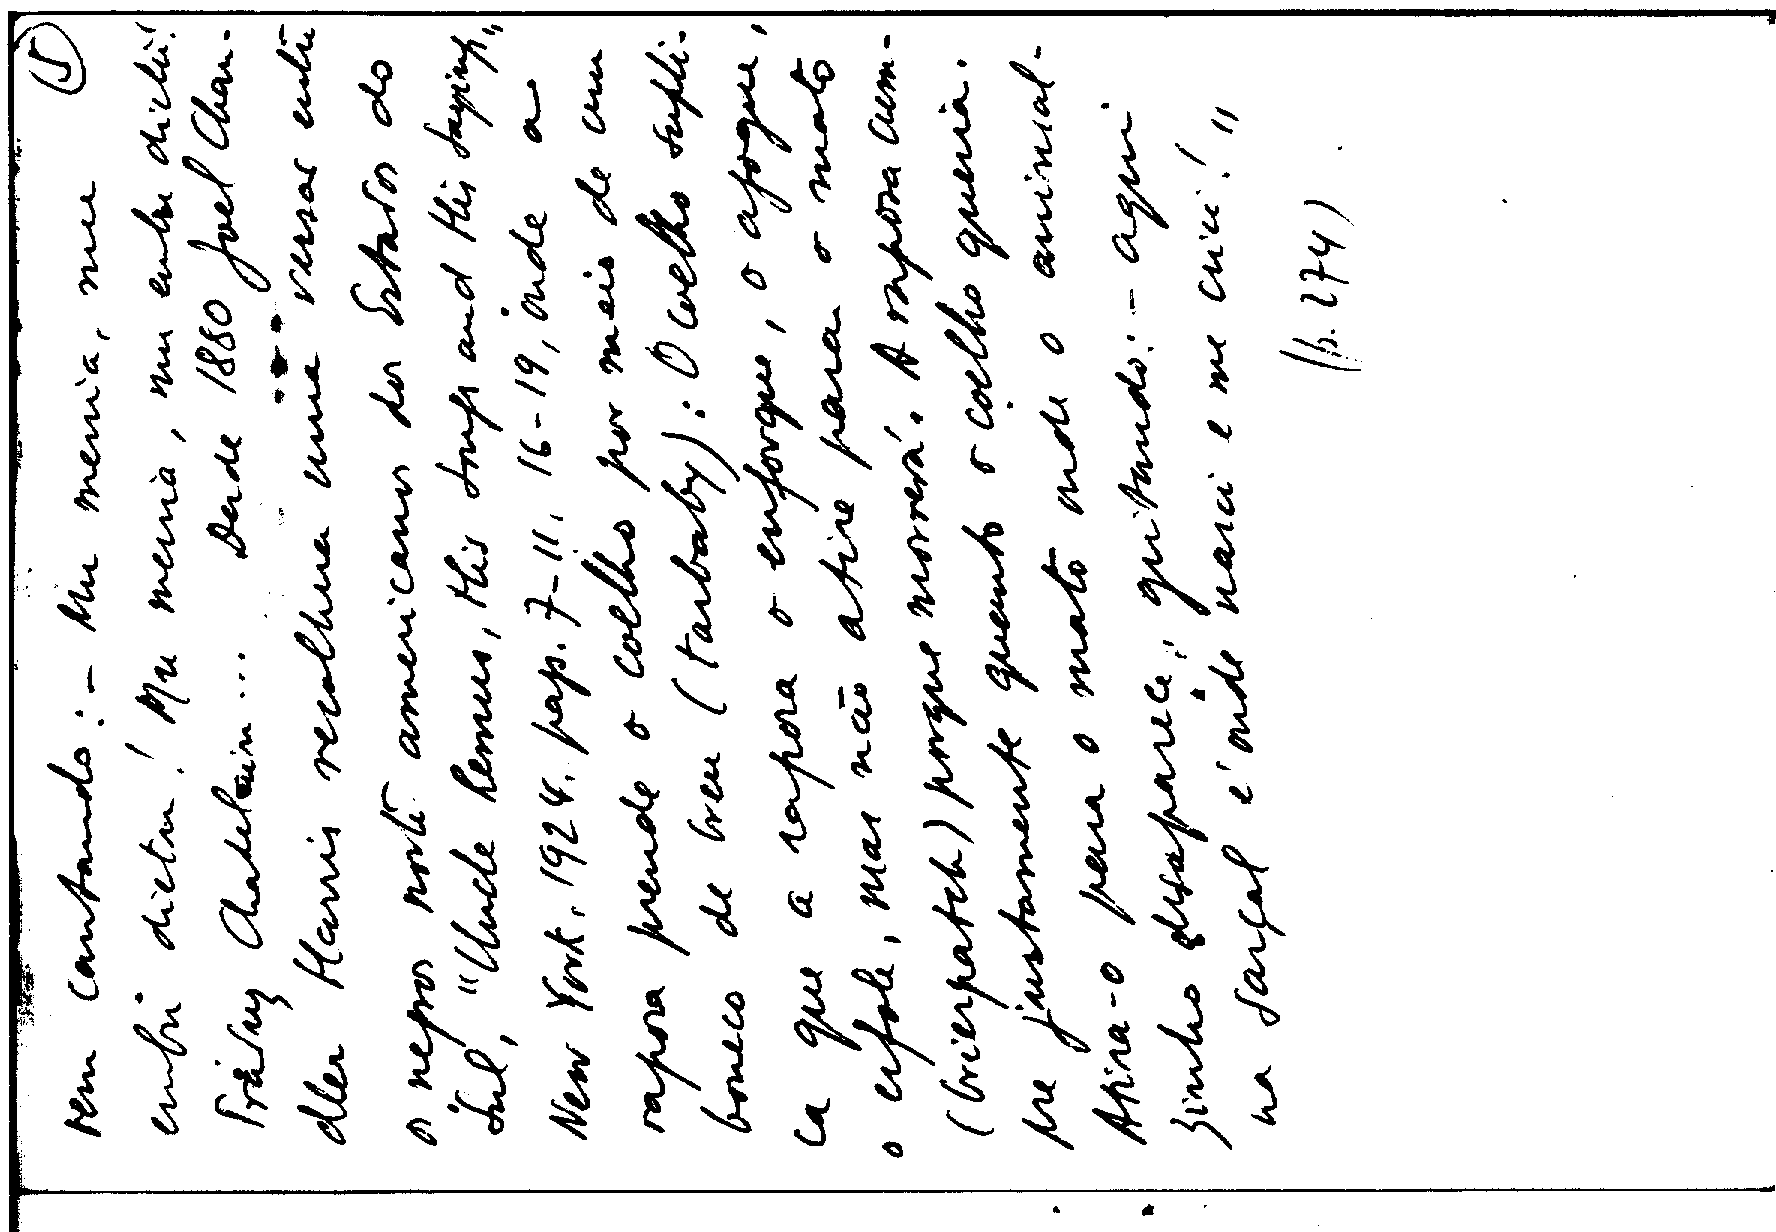 5
rem cantando: – Mu menia, mu
embu dietu! Mu menia, mu embu dietu!
Tráduz Chatelain... Desde 1880 Joel Chan-
dler Harris recolhera uma versão entre
os negros norte americanos dos Estados do
Sul, "Uncle Remus, His Songs and His Sayings",
New York. 1924. pags. 7-11. 16-19, onde a
raposa prende o coelho por meio de um
boneco de breu (tarbaby): O coelho supli-
ca que a raposa o enforque, o afogue,
o esfole, mas não atire para o mato
(brierpatch) porque morrerá. A raposa cum-
pre justamente quanto o coelho queria.
Atira-o para o mato onde o animal-
zinho desaparece, gritando: – aqui
na sarçal é onde nasci e me criei!"
(p. 274)